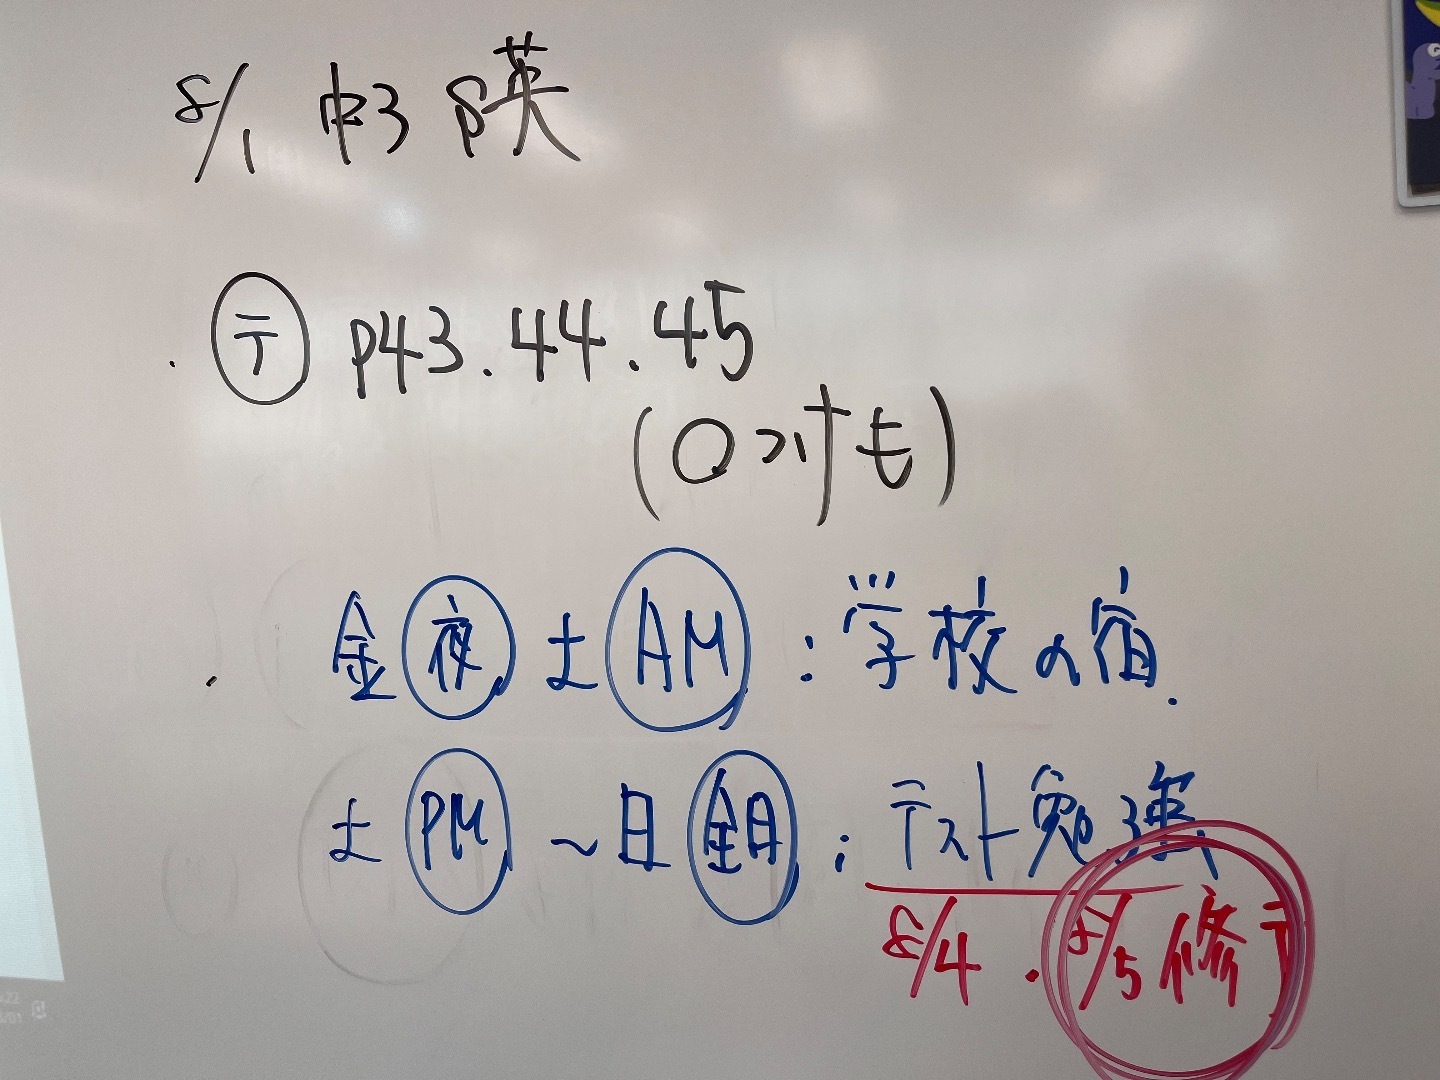 8/1 中3 β英
・㋢ P43.44.45
(○つけも)
・金夜 土AM:学校の宿.
土PM〜日全日:テスト勉強
8/4・8/5修テ